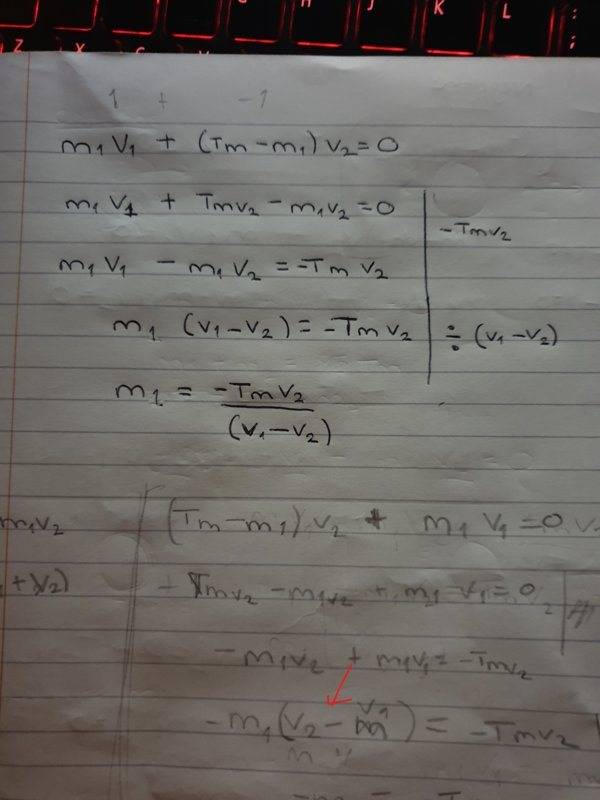 Z X C
H J K L : ;
1 + -1
m₁ V₁ + (Tm - m₁) V₂ = 0
m₁ V₁ + TmV₂ - m₁V₂ = 0
-TmV₂
m₁ V₁ - m₁ V₂ = -Tm V₂
m₁ (V₁ - V₂) = -Tm V₂ ÷ (V₁ - V₂)
m₁ = -TmV₂
(V₁ - V₂)
m₁V₂ (Tm - m₁) V₂ + m₁ V₁ = 0
+ V₂) TmV₂ - m₁V₂ + m₁ V₁ = 0
- m₁V₂ + m₁V₁ = -TmV₂
- m₁ (V₂ - V₁) = -TmV₂